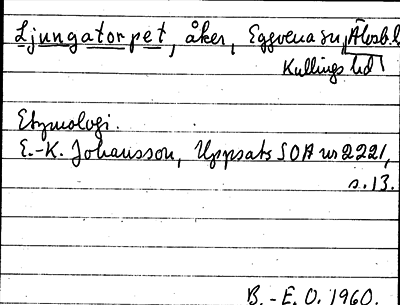 Ljungatorpet, åker, Eggvena sn, Älvsb.l
Kullings hd
Etymologi.
E.-K. Johansson, Uppsats SOA nr 2221,
s. 13.
B.-E. O. 1960.